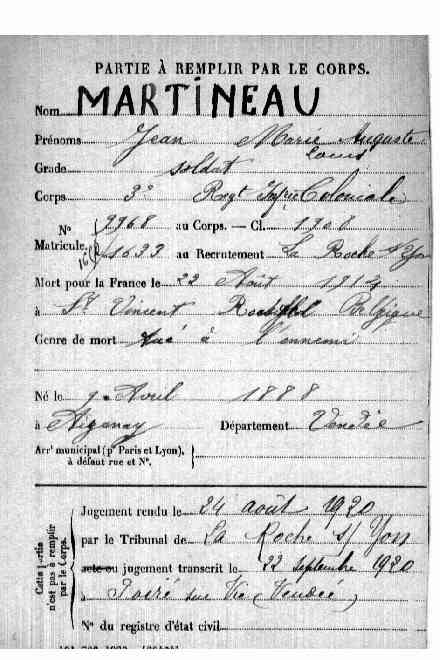 PARTIE À REMPLIR PAR LE CORPS.
Nom MARTINEAU
Prénoms Jean Marie Auguste
Louis
Grade soldat
Corps 3e Regt Infrie Coloniale
No 9968 au Corps. — Cl. 1908
Matricule. 1633 au Recrutement La Roche s/Yon
Mort pour la France le 22 Août 1914
à St Vincent Belgique
Genre de mort tué à l'ennemi
Né le Avril 1888
à Aizenay Département Vendée
Arrt municipal (pr Paris et Lyon),
à défaut rue et No.
Cette partie
n'est pas à remplir
par le Corps.
Jugement rendu le 24 août 1920
par le Tribunal de La Roche s/ Yon
acte ou jugement transcrit le 22 septembre 1920
à Poiré sur Vie (Vendée)
No du registre d'état civil